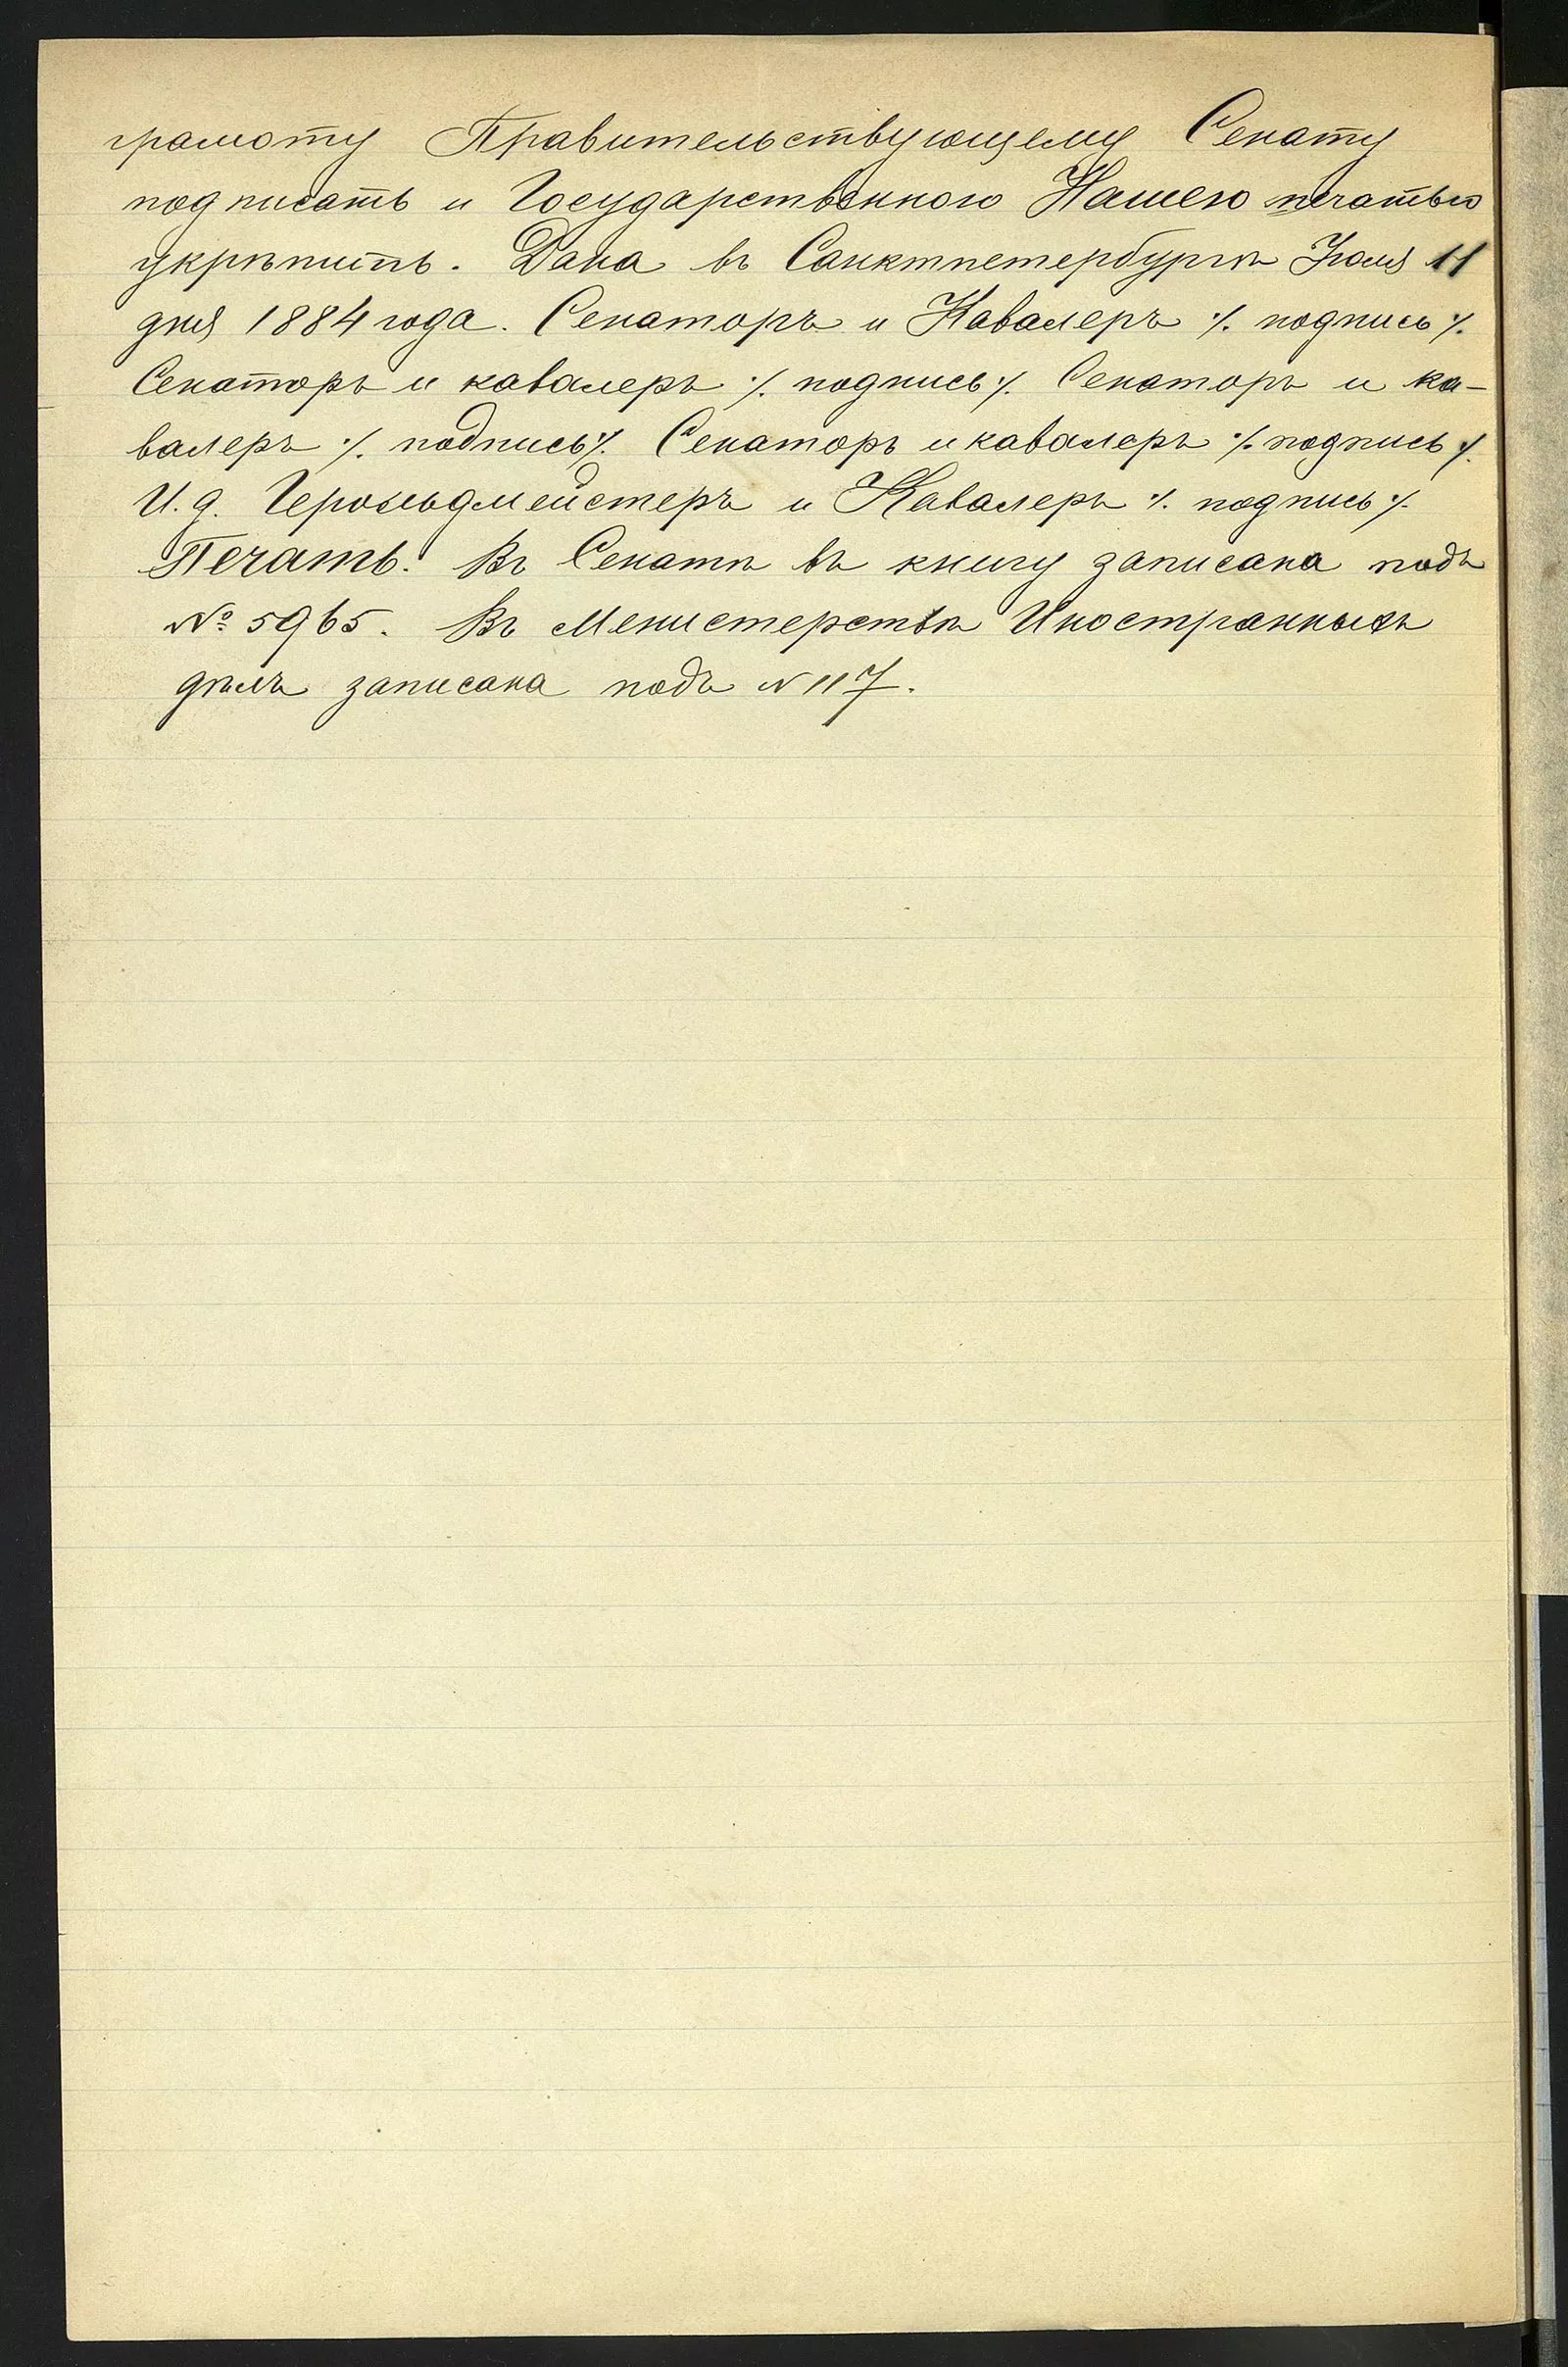 грамоту Правительствующему Сенату
подписать и Государственною Нашею печатью
укрѣпить. Дана въ Санктпетербургѣ Іюля 11
дня 1884 года. Сенаторъ и Кавалеръ ·/. подпись ·/.
Сенаторъ и кавалеръ ·/. подпись ·/. Сенаторъ и ка-
валеръ ·/. подпись ·/. Сенаторъ и кавалеръ ·/. подпись ·/.
И. д. Герольдмейстеръ и Кавалеръ ·/. подпись ·/.
Печать. Въ Сенатѣ въ книгу записана подъ
№ 5965. Въ Менистерствѣ Иностранныхъ
дѣлъ записана подъ N 117.